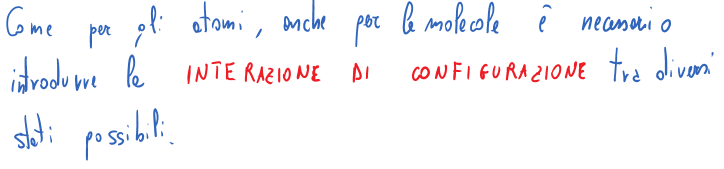 Come per gli atomi, anche per le molecole è necessario
introdurre la INTERAZIONE DI CONFIGURAZIONE tra diversi
stati possibili.